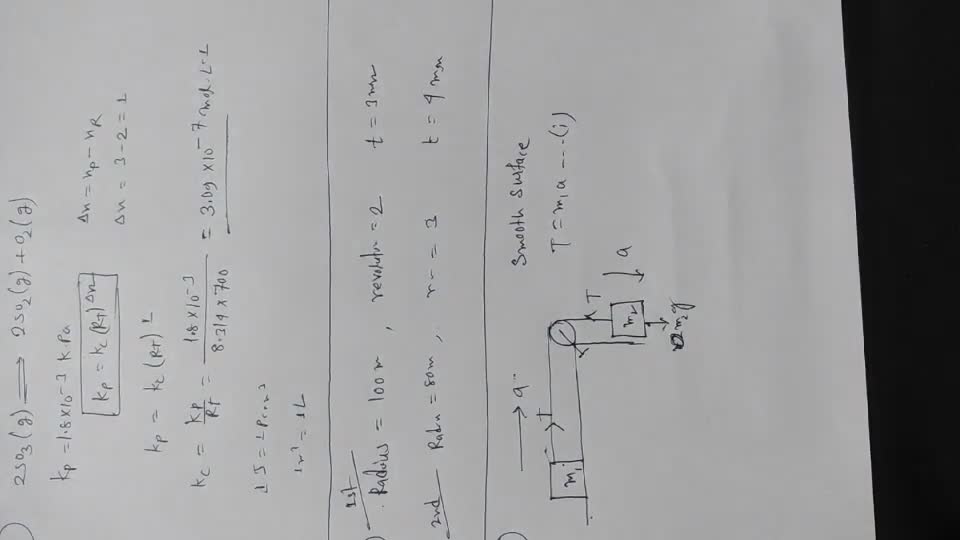 2SO3(g) ⇌ 2SO2(g) + O2(g)
kp = 1.8×10-3 kPa
kp = kc (RT)Δn
Δn = np - nR
Δn = 3 - 2 = 1
kp = kc (RT)1
kc = kp/RT = 1.8×10-3/8.314×700 = 3.09×10-7 mol.L-1
1J = 1Pa m3
1st
Radius = 100m, revolutn = 2 t = 3min
2nd Radiu = 80m, r = 3 t = 4 min
Smooth Surface
→ a
m1 T
T = m1a ---(i)
T
m2 a
m2g